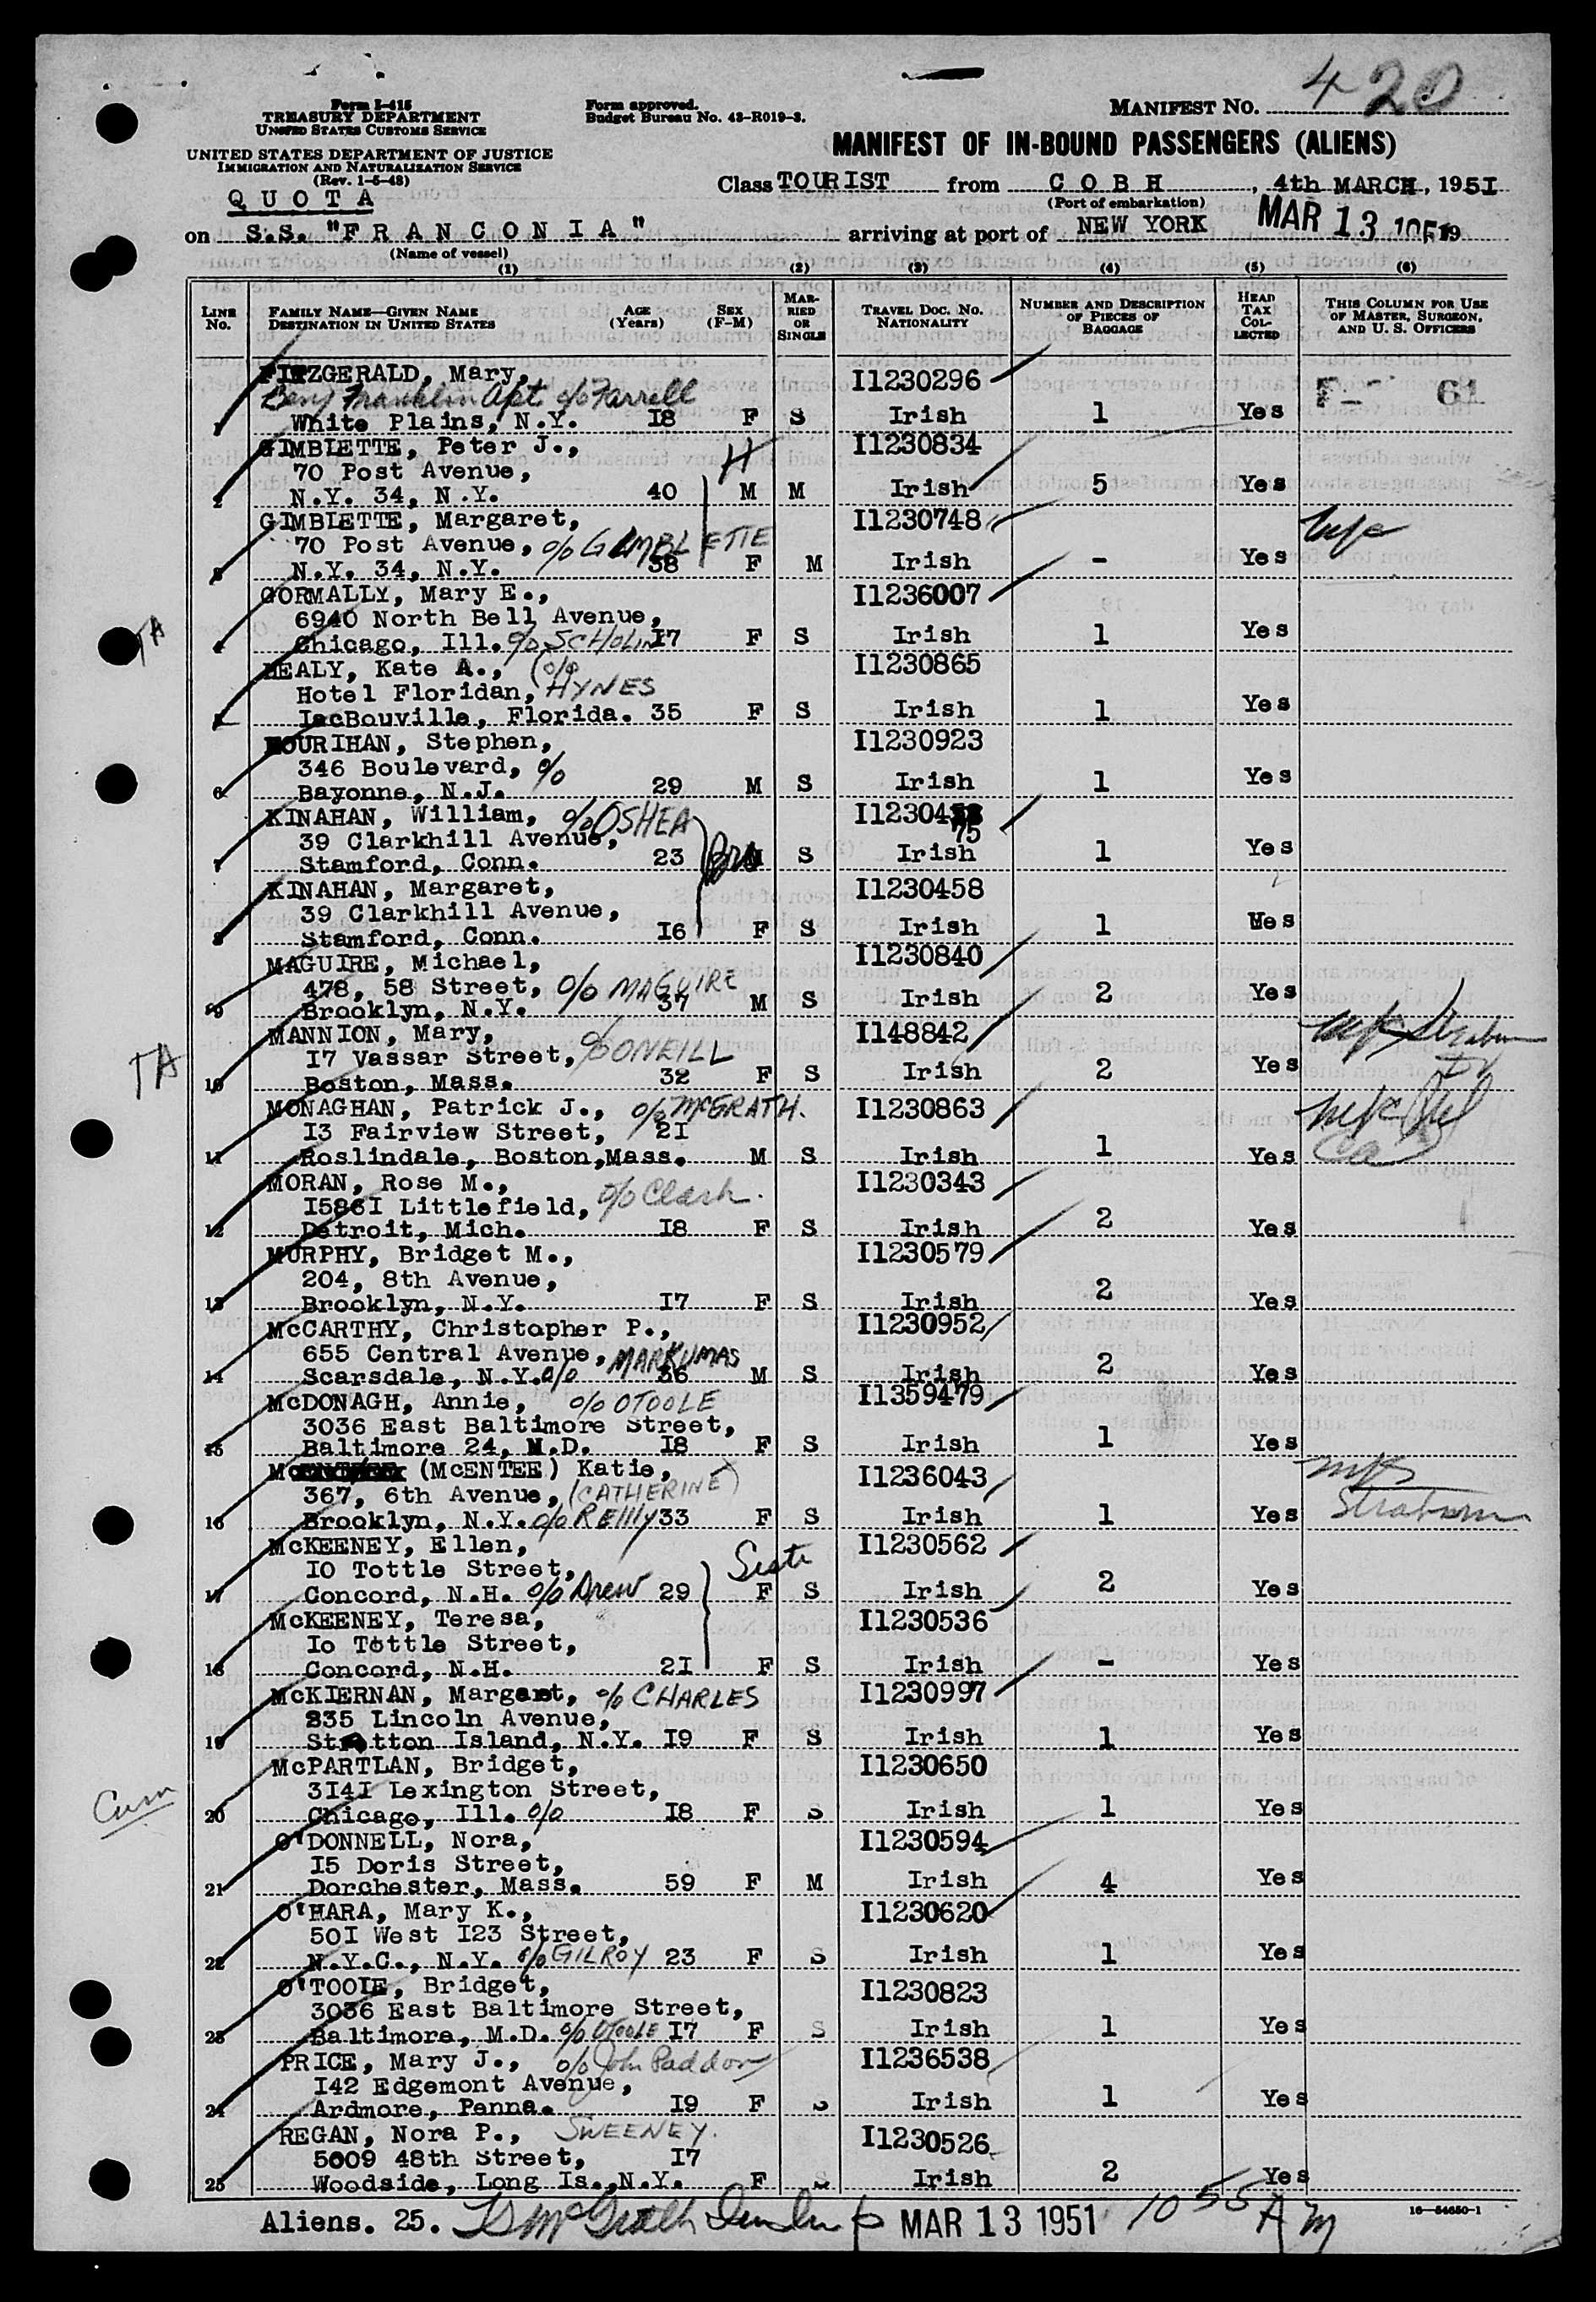 420
Form I-415
TREASURY DEPARTMENT
UNITED STATES CUSTOMS SERVICE
UNITED STATES DEPARTMENT OF JUSTICE
IMMIGRATION AND NATURALIZATION SERVICE
(Rev. 1-5-48)
QUOTA
Form approved.
Budget Bureau No. 43-R019-3.
MANIFEST No.
MANIFEST OF IN-BOUND PASSENGERS (ALIENS)
Class TOURIST from COBH, 4th MARCH, 1951
(Port of embarkation)
on S.S. "FRANCONIA" arriving at port of NEW YORK MAR 13 1951 19
(Name of vessel)
(1) (2) (3) (4) (5) (6)
LINE No. FAMILY NAME—GIVEN NAME DESTINATION IN UNITED STATES AGE (Years) SEX (F-M) MARRIED OR SINGLE TRAVEL DOC. No. NATIONALITY NUMBER AND DESCRIPTION OF PIECES OF BAGGAGE HEAD TAX COLLECTED THIS COLUMN FOR USE OF MASTER, SURGEON, AND U. S. OFFICERS
FITZGERALD, Mary, I1230296
Benj Franklin Apt. c/o Farrell F- 61
1 White Plains, N.Y. 18 F S Irish 1 Yes
GIMBLETTE, Peter J., H I1230834
70 Post Avenue,
2 N.Y. 34, N.Y. 40 M M Irish 5 Yes
GIMBLETTE, Margaret, I1230748
70 Post Avenue, c/o GIMBLETTE
3 N.Y. 34, N.Y. 38 F M Irish - Yes
GORMALLY, Mary E., I1236007
6940 North Bell Avenue,
TA 4 Chicago, Ill. c/o SCHOLIN 17 F S Irish 1 Yes
HEALY, Kate A., (c/o I1230865
Hotel Floridan, HYNES
5 IacBouville, Florida. 35 F S Irish 1 Yes
HOURIHAN, Stephen, I1230923
346 Boulevard, c/o
6 Bayonne, N.J. 29 M S Irish 1 Yes
KINAHAN, William, c/o OSHEA I1230458
39 Clarkhill Avenue, 75
7 Stamford, Conn. 23 Bro M S Irish 1 Yes
KINAHAN, Margaret, I1230458
39 Clarkhill Avenue,
8 Stamford, Conn. 16 F S Irish 1 Yes
MAGUIRE, Michael, I1230840
478, 58 Street, c/o MAGUIRE
9 Brooklyn, N.Y. 37 M S Irish 2 Yes
MANNION, Mary, I148842
17 Vassar Street, c/o ONEILL
TA 10 Boston, Mass. 32 F S Irish 2 Yes
MONAGHAN, Patrick J., c/o McGRATH. I1230863
13 Fairview Street, 21
11 Roslindale, Boston,Mass. M S Irish 1 Yes
MORAN, Rose M., I1230343
15861 Littlefield, c/o Clark.
12 Detroit, Mich. 18 F S Irish 2 Yes
MURPHY, Bridget M., I1230579
204, 8th Avenue,
13 Brooklyn, N.Y. 17 F S Irish 2 Yes
McCARTHY, Christopher P., I1230952
655 Central Avenue, MARKUMAS
14 Scarsdale, N.Y. c/o 36 M S Irish 2 Yes
McDONAGH, Annie, c/o OTOOLE I1359479
3036 East Baltimore Street,
15 Baltimore 24, M.D. 18 F S Irish 1 Yes
(McENTEE) Katie, I1236043
367, 6th Avenue, (CATHERINE)
16 Brooklyn, N.Y. c/o REIlly 33 F S Irish 1 Yes
McKEENEY, Ellen, I1230562
10 Tottle Street,
17 Concord, N.H. c/o Drew 29 F S Irish 2 Yes
McKEENEY, Teresa, I1230536
Io Tottle Street,
18 Concord, N.H. 21 F S Irish - Yes
McKIERNAN, Margaret, c/o CHARLES I1230997
235 Lincoln Avenue,
19 Statton Island, N.Y. 19 F S Irish 1 Yes
McPARTLAN, Bridget, I1230650
3141 Lexington Street,
20 Chicago, Ill. c/o 18 F S Irish 1 Yes
O'DONNELL, Nora, I1230594
15 Doris Street,
21 Dorchester, Mass. 59 F M Irish 4 Yes
O'HARA, Mary K., I1230620
501 West 123 Street,
22 N.Y.C., N.Y. c/o GILROY 23 F S Irish 1 Yes
O'TOOLE, Bridget, I1230823
3036 East Baltimore Street,
23 Baltimore, M.D. c/o OTOOLE 17 F S Irish 1 Yes
PRICE, Mary J., c/o John Paddon I1236538
142 Edgemont Avenue,
24 Ardmore, Penna. 19 F S Irish 1 Yes
REGAN, Nora P., SWEENEY. I1230526
5009 48th Street, 17
25 Woodside, Long Is.,N.Y. F S Irish 2 Yes
16—54650-1
Aliens. 25. McGrath MAR 13 1951 10 55 AM